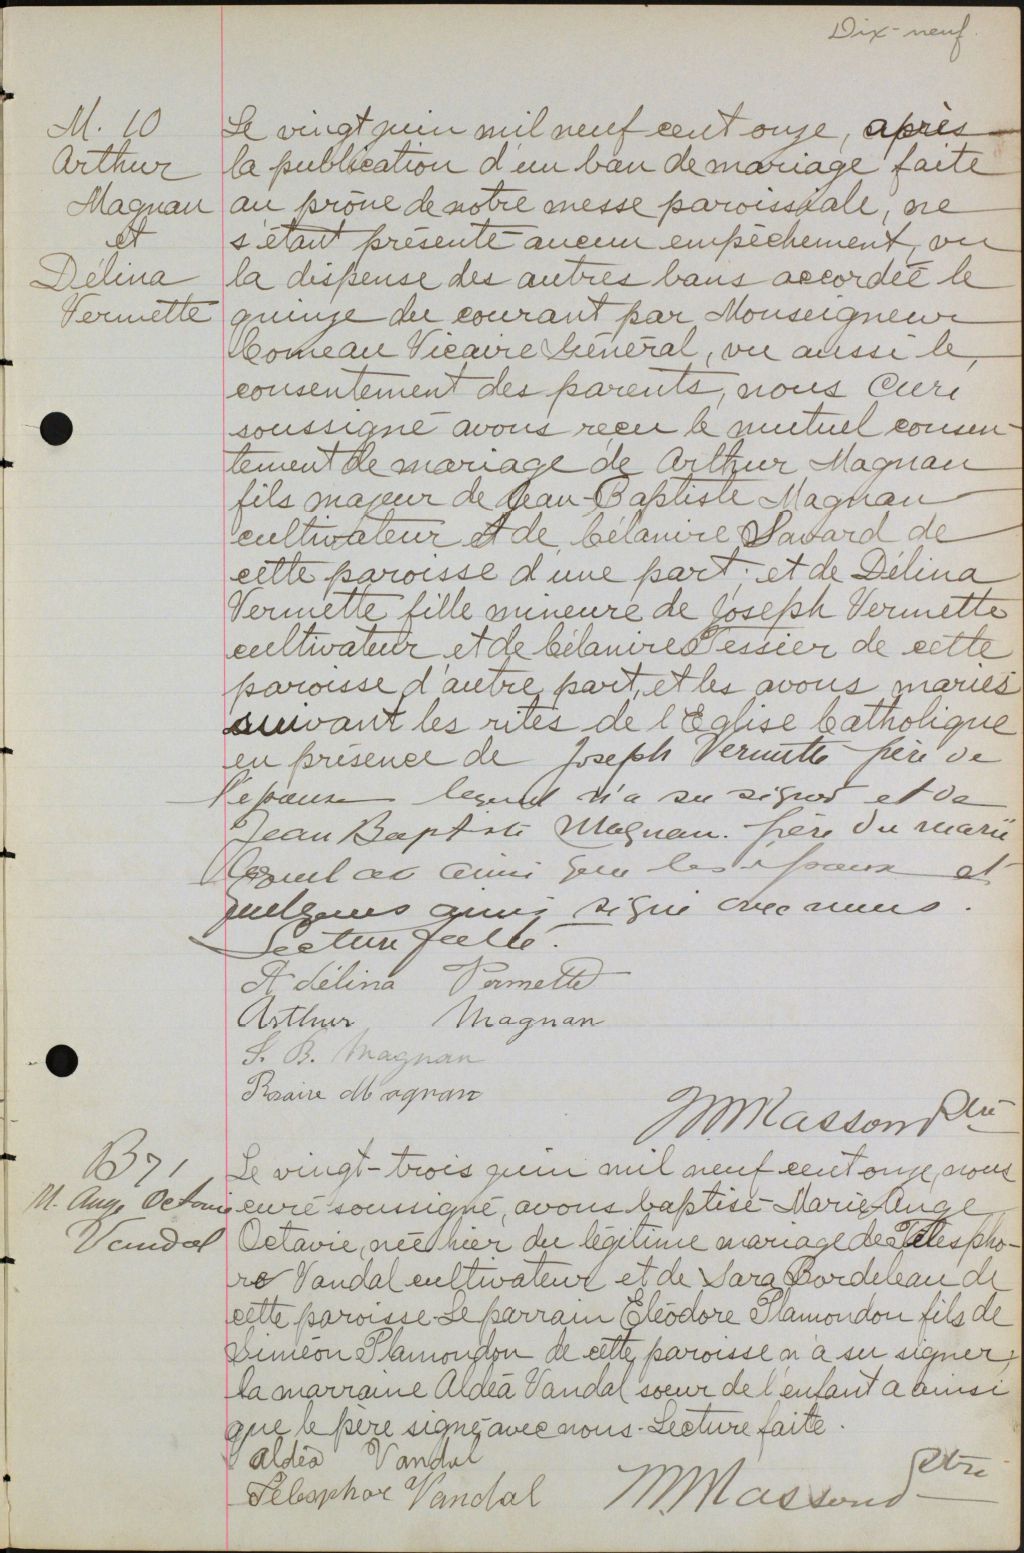 Dix-neuf.
M. 10
Arthur
Magnan
et
Délina
Vermette
Le vingt juin mil neuf cent onze, après
la publication d'un ban de mariage faite
au prône de notre messe paroissiale, ne
s'étant présenté aucun empêchement, vu
la dispense des autres bans accordée le
quinze du courant par Monseigneur
Comeau Vicaire Général, vu aussi le
consentement des parents, nous Curé
soussigné avons reçu le mutuel consen-
tement de mariage de Arthur Magnan
fils majeur de Jean-Baptiste Magnan
cultivateur et de Célanire Savard de
cette paroisse d'une part; et de Délina
Vermette fille mineure de Joseph Vermette
cultivateur et de Célanire Tessier de cette
paroisse d'autre part, et les avons mariés
suivant les rites de l'Eglise Catholique
en présence de Joseph Vermette père de
l'épouse lequel n'a su signer et de
Jean Baptiste Magnan père du marié
lequel a ainsi que les époux et
quelques amis signé avec nous.
Lecture faite.
Adélina Vermette
Arthur Magnan
J. B. Magnan
Rosaire Magnan
M Masson Ptre
B 71
M. Ange Octavie
Vandal
Le vingt-trois juin mil neuf cent onze, nous
curé soussigné, avons baptisé Marie-Ange
Octavie, née hier du légitime mariage de Télespho-
re Vandal cultivateur et de Sara Bordeleau de
cette paroisse. Le parrain Eléodore Plamondon fils de
Siméon Plamondon de cette paroisse n'a su signer,
la marraine Aldéa Vandal soeur de l'enfant a ainsi
que le père signé avec nous. Lecture faite.
Aldéa Vandal
Télesphor Vandal
M Masson Ptre